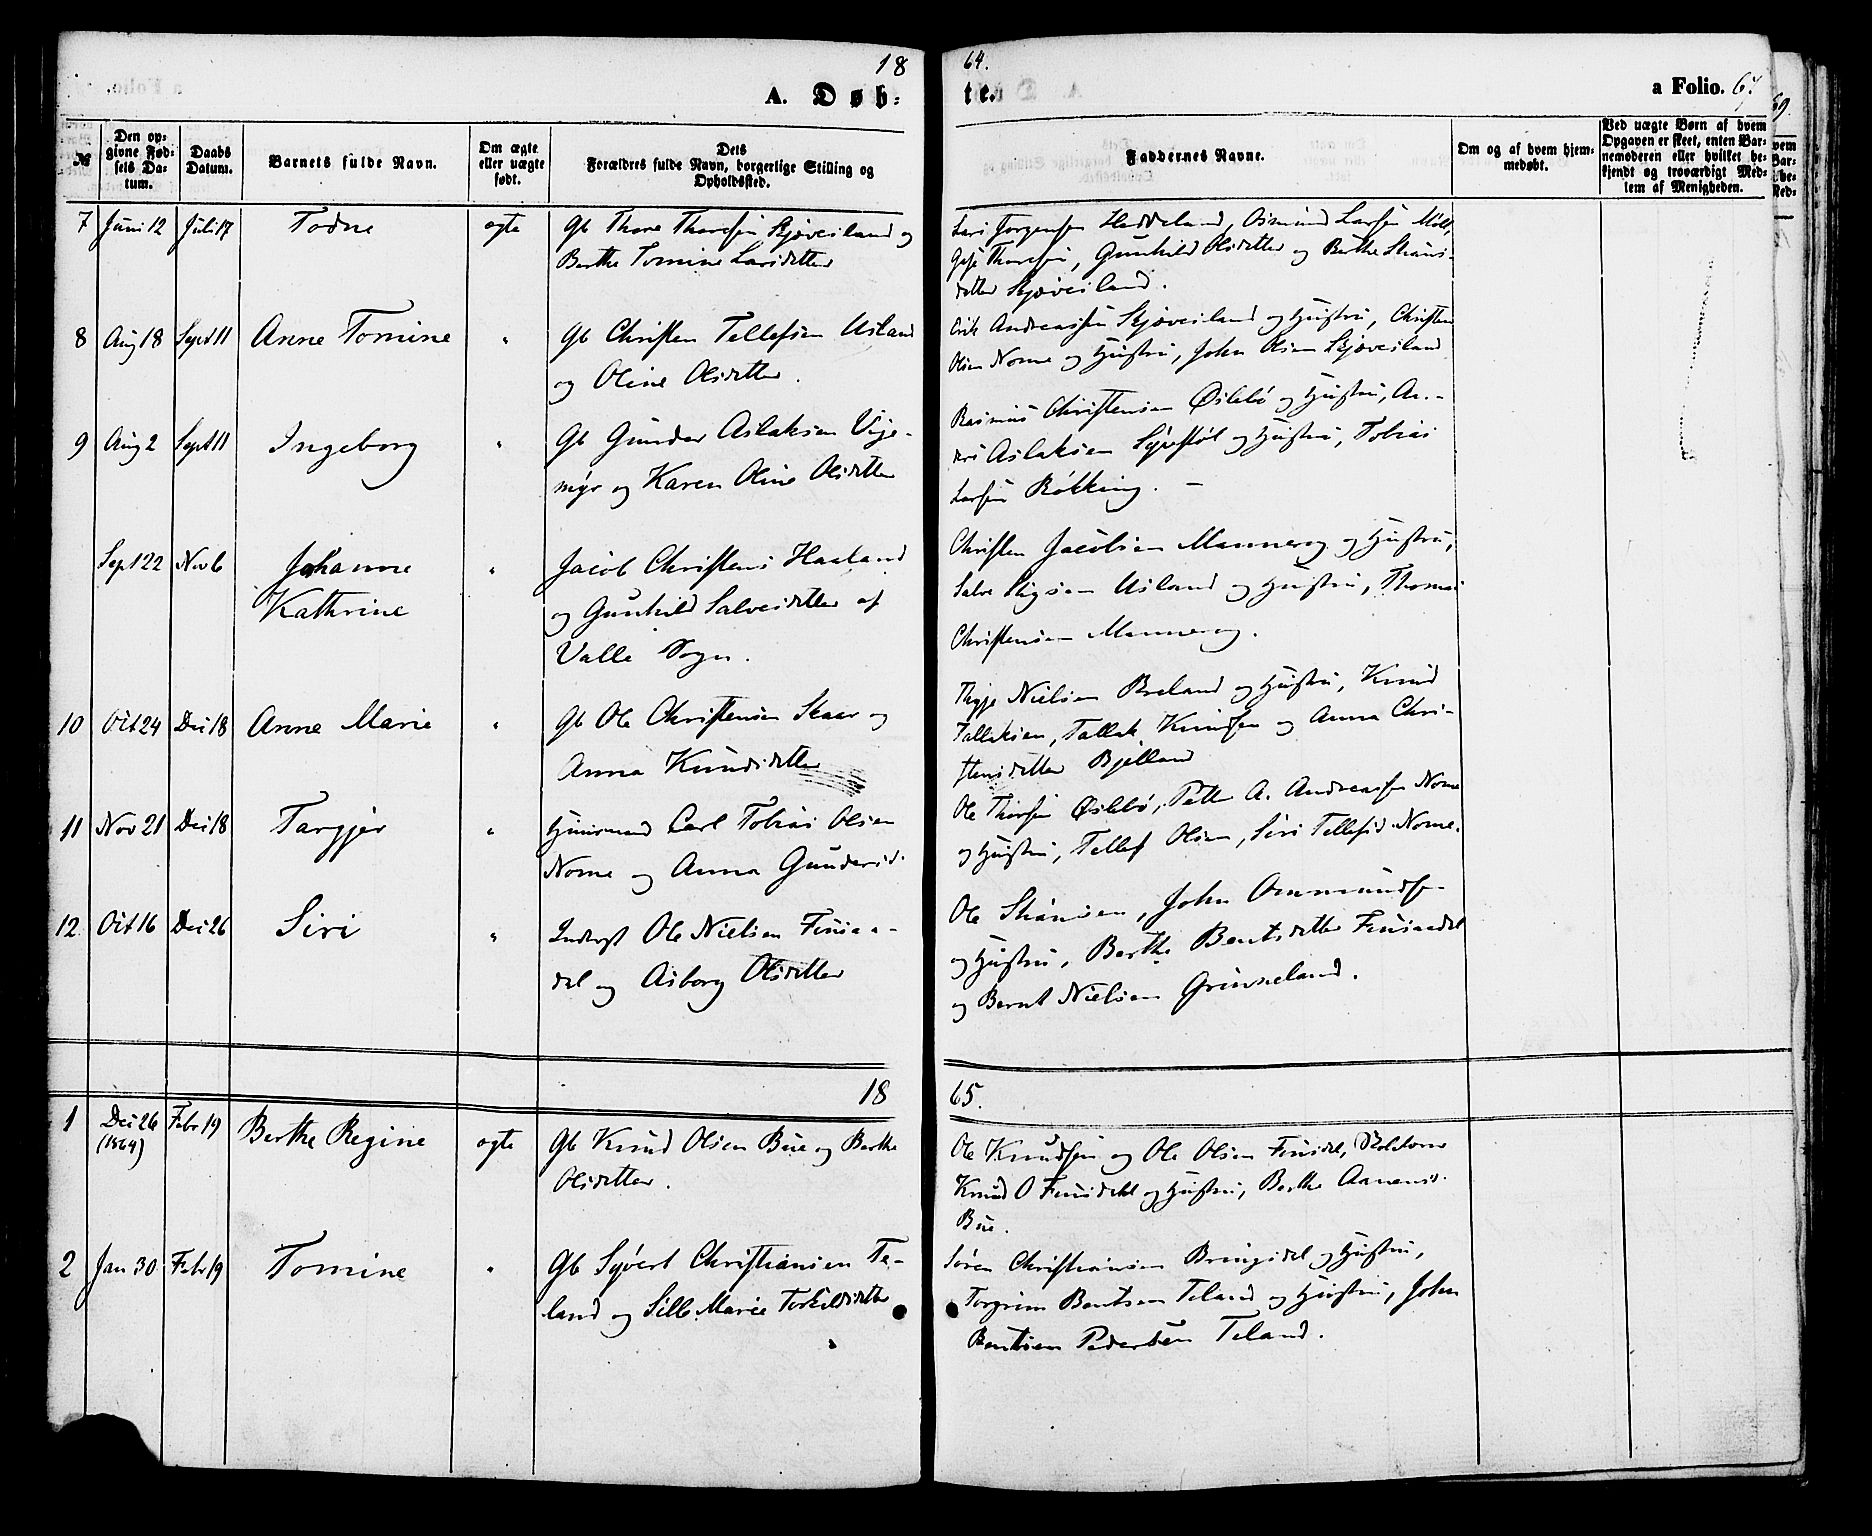 18 64.
A. Døb: te. a Folio. 67
№
Den op-
givne Fød-
sels Da-
tum.
Daabs
Datum.
Barnets fulde Navn.
Om ægte
eller uægte
født.
Dets
Forældres fulde Navn, borgerlige Stilling og
Opholdssted.
Faddernes Navne.
Om og af hvem hjem-
medøbt.
Ved uægte Børn af hvem
Opgaven er skeet, enten Bar-
nemoderen eller hvilket be-
kjendt og troværdigt Med-
lem af Menigheden.
69.
7 Juni 12 Juli 17 Todne ægte Gb Thore Thoresen Skjæveiland og
Berthe Tomine Larsdatter
Lars Jørgensen Haddeland, Osmund Larsen Møll,
Thoresen, Gunhild Olsdatter og Berthe
datter Skjæveiland.
8 Aug 18 Sept 11 Anne Tomine " Gb Christen Tellefsen Usland
og Oline Olsdatter.
Erik Andreassen Skjæveiland og Hustru, Christen
Olsen Nome og Hustru, John Olsen Skjæveiland
9 Aug 2 Sept 11 Ingeborg " Gb Gunder Aslaksen Vije-
myr og Karen Oline Olsdatter
Rasmus Christensen Øslebø og Hustru, An-
ders Aslaksen og Hustru, Tobias
Larsen Røkking.
Sept 22 Nov 6 Johanne
Kathrine
" Jacob Christens Haaland
og Gunhild Salvesdatter af
Valle Sogn.
Christen Jacobsen Mannerog og Hustru,
Salve Stigsen Usland og Hustru, Thomas
Christensen Mannerog.
10 Oct 24 Dec 18 Anne Marie " Gb Ole Christensen Skaar og
Anna Knudsdatter
Nielsen Breland og Hustru, Knud
Tallaksen, Tallak Knudsen og Anna Chri-
stensdatter Bjelland
11 Nov 21 Dec 18 Targjer " Huusmand Carl Tobias Olsen
Nome og Anna Gundersd.
Ole Thorsen Øslebø, Peter A. Andreassen Nome
og Hustru, Tellef Olsen, Siri Tellefsd. Nome.
12 Oct 16 Dec 26 Siri " Inderst Ole Nielsen Finsaa-
dal og Asborg Olsdatter
Ole , John Ommundsen
og Hustru, Berthe Bentsdatter Finsaadal
og Bernt Nielsen Grunneland.
18 65.
1 Dec 26
(1864)
Febr 19 Berthe Regine ægte Gb Knud Olsen Bue og Berthe
Olsdatter.
Ole Knudsen og Ole Olsen Finsdal, Skoleholder
Knud O Finsdal og Hustru, Berthe Aanensd.
Bue.
2 Jan 30 Febr 19 Tomine " Gb Syvert Christiansen Te-
land og Sille Marie Torkildsdatter
Søren Christiansen Bringsdal og Hustru,
Torgrim Bentsen Teland og Hustru, John
Bentsen Pedersen Teland.